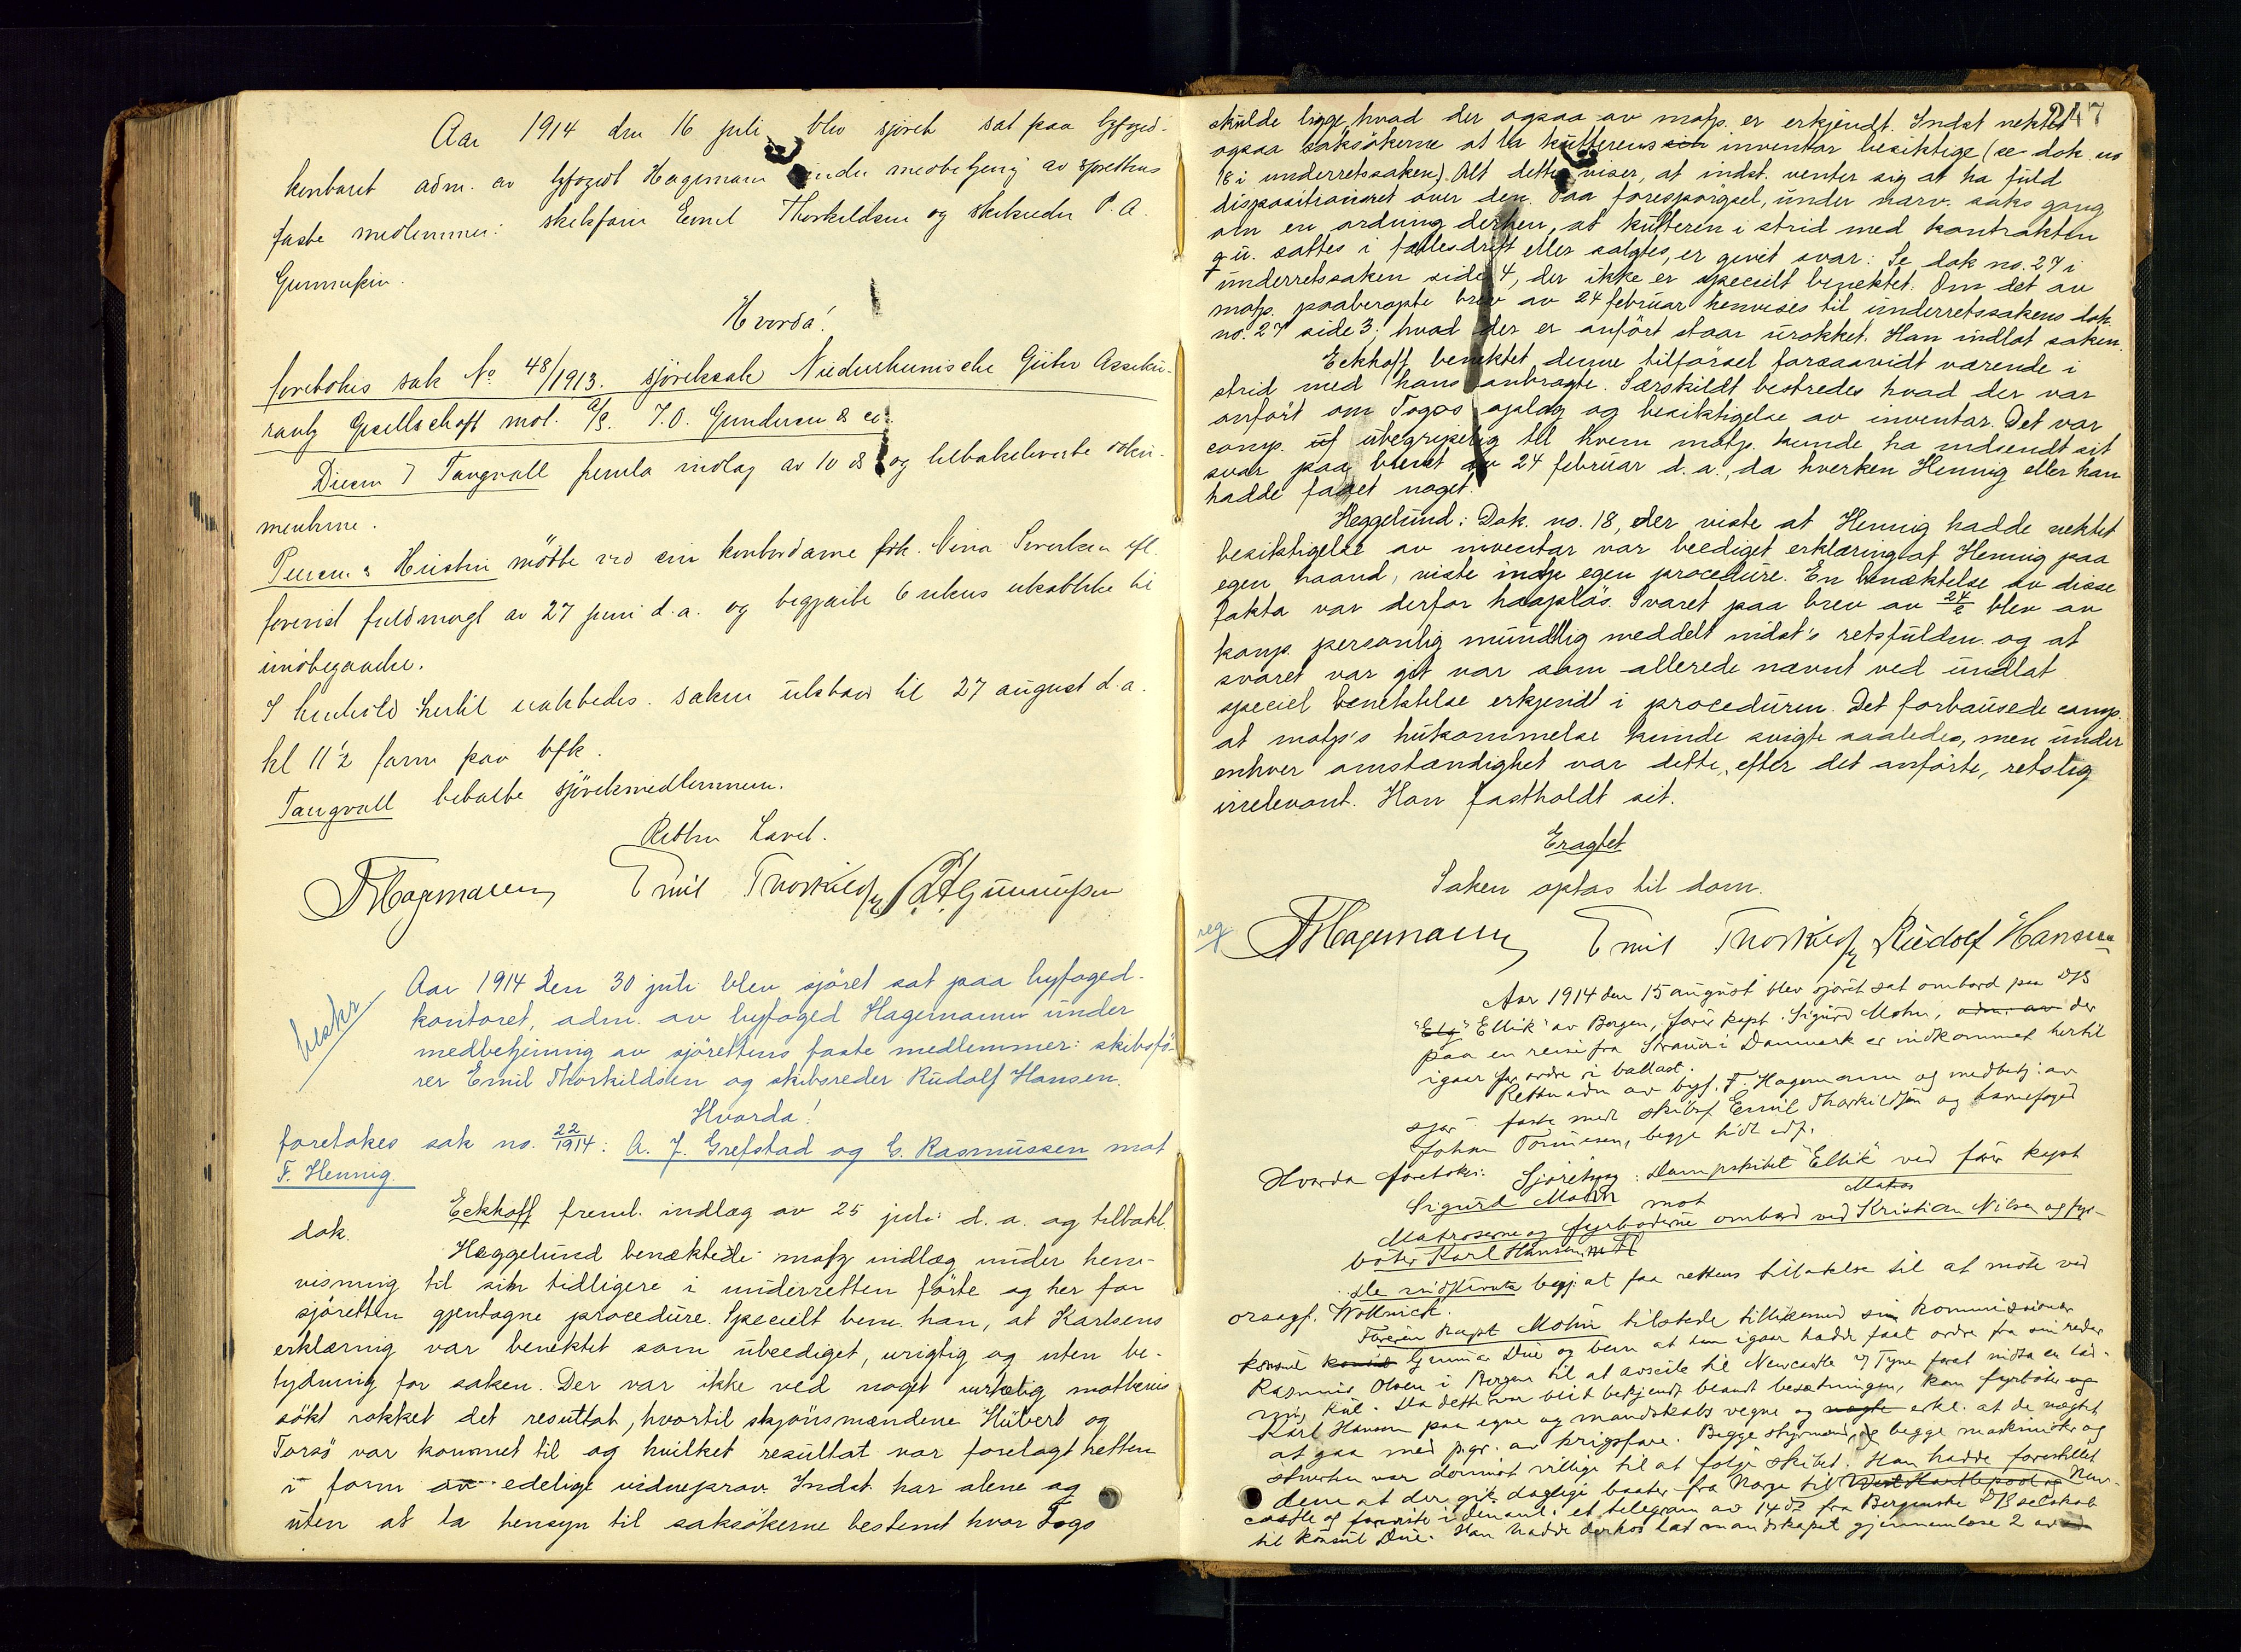 Aar 1914 den 16 juli blev sjöret sat paa byfoged-
kontoret adm. av byfoged Hagemann under medbetjening av sjörettens
faste medlemmer: skibsförer Emil Thorkildsen og skibsreder P. A.
Gunnufsen.
Hvorda!
foretokes sak No 48/1913. sjöretssak Niederrheinische Güter Asseku-
rantz Gesellschaft mot. A/S. J. O. Gundersen & co.
Diesen & Tangvall fremla indlæg av 10 ds og tilbakeleverte doku-
mentene.
Hustri mötte ved sin kontordame frk. Nina Sivertsen efl.
forevist fuldmagt av 27 juni d.a. og begjærte 6 ukers utsættelse til
imötegaaelse.
I henhold hertil utsattes saken utsat til 27 august d.a.
kl 11 1/2 form paa bfk.
Tangvall betalte sjöretsmedlemmene.
Retten hævet.
FHagemann Emil Thorkildsen PAGunnufsen
beskr
Aar 1914 den 30 juli blev sjöret sat paa byfoged-
kontoret, adm. av byfoged Hagemann under
medbetjening av sjörettens faste medlemmer: skibsfö-
rer Emil Thorkildsen og skibsreder Rudolf Hansen.
Hvorda!
foretokes sak no. 22/1914: A. J. Grefstad og C. Rasmussen mot
F. Hennig.
Eckhoff freml. indlæg av 25 juli d.a. og tilbakl.
dok.
Heggelund benæktede motp indlæg under hen-
visning til sin tidligere i underretten förte og her for
sjöretten gjentagne procedure. Specielt bem. han, at Karlsens
erklæring var benektet som ubeediget, urigtig og uten be-
tydning for saken. Der var ikke ved noget virkelig motbevis
sökt rokket det resultat, hvortil skjönsmændene Hübert og
Torsö var kommet til og hvilket resultat var forelagt retten
i form av edelige vidneprov. Indst. har alene og
uten at ta hensyn til saksökerne bestemt hvor Togo
247
skulde ligge, hvad der ogsaa av motp. er erkjendt. Indst nektet
ogsaa saksökerne at ta kutterens sin inventar besiktige (se dok. no
18 i underretssaken). Alt dette viser, at indst. venter sig at ha fuld
dispositionsret over den. Paa forespörgsel, under nærv. saks gang
om en ordning derhen, at kutteren i strid med kontrakten
g.u. sattes i fællesdrift eller salgtes, er givet svar: Se dok no. 27 i
underretssaken side 4, der ikke er specielt benektet. Om det av
motp. paaberopte brev av 24 februar henvises til underretssakens dok.
no. 27 side 3: hvad der er anfört staar urokket. Han indlot saken.
Eckhoff benektet denne tilförsel forsaavidt værende i
strid med hans anbragte. Særskildt bestredes hvad der var
anfört om Togos oplag og besiktigelse av inventar. Det var
comp. uf ubegripelig til hvem motp. kunde ha indsendt sit
svar paa brevet av 24 februar d.a., da hverken Hennig eller han
hadde faaet noget.
Heggelund: Dok. no. 18, der viste at Hennig hadde nektet
besiktigelse av inventar var beediget erklæring af Hennig paa
egen haand, viste motp egen procedure. En benæktelse av disse
fakta var derfor haaplös. Svaret paa brev av 24/2 blev av
komp. personlig mundtlig meddelt indst's retsfuldm. og at
svaret var git var som allerede nævnt ved undlat
speciel benektelse erkjendt i proceduren. Det forbausede comp.
at motp's hukommelse kunde svigte saaledes, men under
enhver omstændighet var dette, efter det anförte, retslig
irrelevant. Han fastholdt sit.
Eragtet
Saken optas til dom.
reg
FHagemann Emil Thorkildsen Rudolf Hansen
Aar 1914 den 15 august blev sjöret sat ombord paa D/S
"Elg" "Ellik" av Bergen, förer kapt. Sigurd Mohn, adm. av der
paa en reise fra Struer i Danmark er indkommet hertil
igaar for ordre i ballast.
Retten adm av byf. F. Hagemann og medbetj: av
sjör- faste medl skibsf Emil Thorkildsen og havnefoged
Johan Tönnesen, begge hidt edf.
Hvorda foretokes: Sjöretssag: Dampskibet "Ellik" ved förer kapt
Sigurd Mohn mot
Matroserne og fyrböderne ombord ved Matros Kristian Nilsen og fyr-
böter Karl Hansen m fl
de indstevnte begj. at faa rettens tillatelse til at möte ved
orsagf. Wollnick.
Föreren kapt Mohn tilstede tillikemed sin kommissionær
konsul konsul Gunnar Due og bem at han igaar hadde faat ordre fra sin reder
Rasmus Olsen i Bergen til at avseile til Newcastle o/ Tyne forat indta en lad-
ning kul. Da dette var blit bekjendt blandt besætningen, kom fyrböter og
Karl Hansen paa egne og mandskabs vegne og nægte erkl. at de nægtet
at gaa med p.gr. av krigsfare. Begge styrmænd, og begge maskinister og
stuerten var derimot villige til at fölge skibet. Han hadde forestillet
dem at der gik daglige baater fra Norge til West Hartlepool og New-
castle og foreviste i denanl. et telegram av 14 ds fra Bergenske D/S selskab
til konsul Due. Han hadde derhos lat mandskapet gjennemlæse 2 av